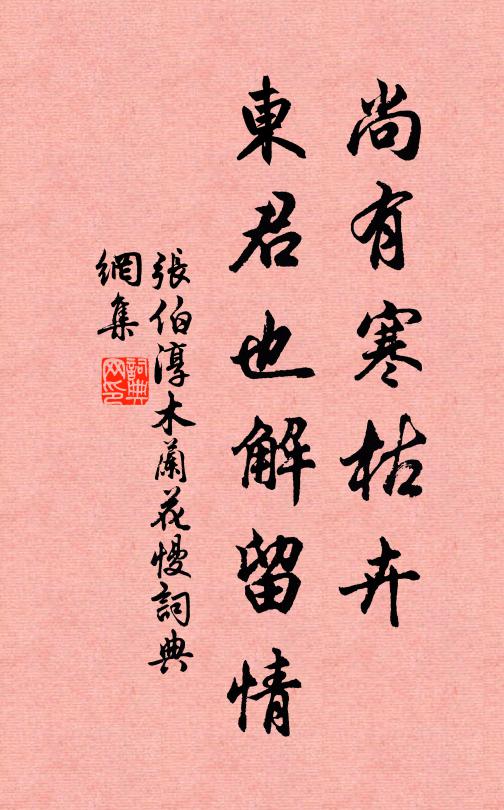 尚有寒枯卉
東君也解留情
張伯淳木蘭花慢詞典
網集
詞典
网印